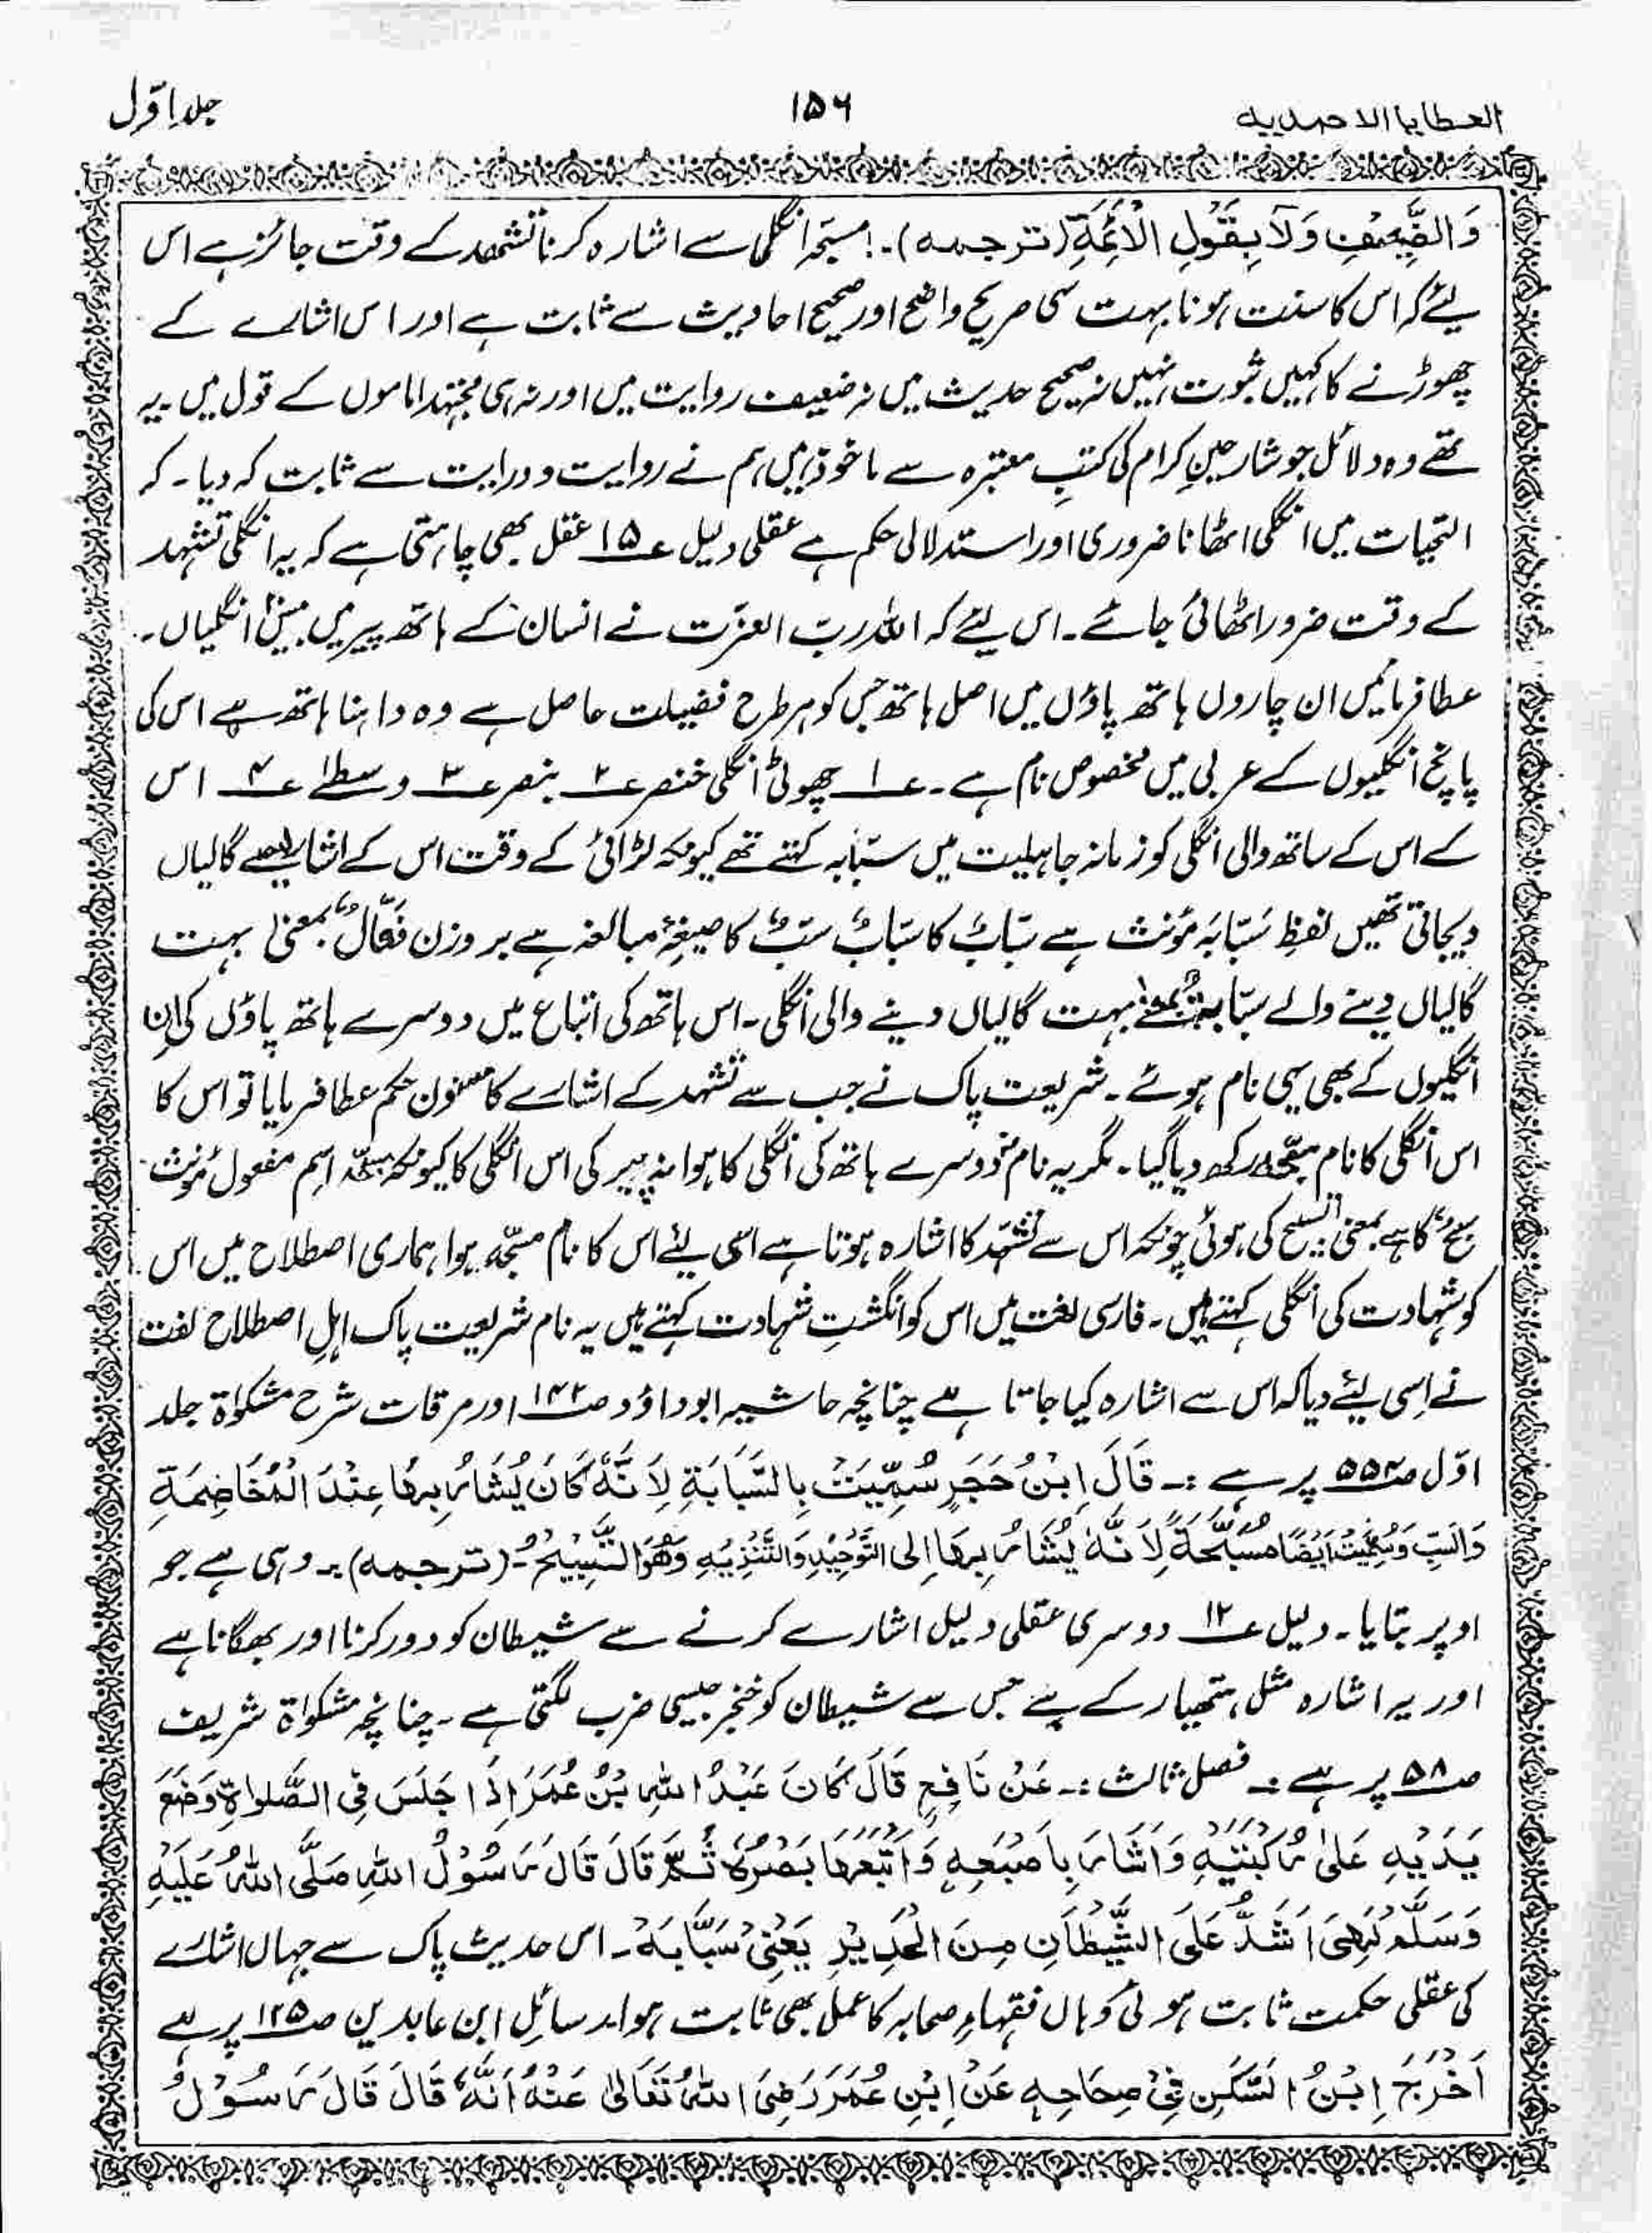 العطایا الاحمدیہ
۱۵۶
جلد اوّل
وَالضَّعِیْفِ وَلَا بِقَوْلِ الْاَئِمَّۃِ (ترجمہ)۔! مسبّحہ انگلی سے اشارہ کرنا تشہد کے وقت جائز ہے اس
لیئے کہ اس کا سنت ہونا بہت سی صریح واضح اور صحیح احادیث سے ثابت ہے اور اس اشارے کے
چھوڑنے کا کہیں ثبوت نہیں نہ صحیح حدیث میں نہ ضعیف روایت میں اور نہ ہی مجتہد اماموں کے قول میں۔ یہ
تھے وہ دلائل جو شارحینِ کرام کی کتبِ معتبرہ سے ماخوذ ہیں ہم نے روایت و درایت سے ثابت کر دیا۔ کہ
التحیات میں انگلی اٹھانا ضروری اور استدلالی حکم ہے عقلی دلیل ع۱۵ عقل بھی چاہتی ہے کہ یہ انگلی تشہد
کے وقت ضرور اٹھائی جائے۔ اس لیئے کہ اللہ ربّ العزّت نے انسان کے ہاتھ پیر میں بیس انگلیاں۔
عطا فرمائیں ان چاروں ہاتھ پاؤں میں اصل ہاتھ جس کو ہر طرح فضیلت حاصل ہے وہ داہنا ہاتھ ہے اس کی
پانچ انگلیوں کے عربی میں مخصوص نام ہے۔ ع۱ چھوٹی انگلی خنصر ع۲ بنصر ع۳ وسطےٰ ع۴ اس
کے اس کے ساتھ والی انگلی کو زمانہ جاہلیت میں سبّابہ کہتے تھے کیونکہ لڑائی کے وقت اس کے اشارے سے گالیاں
دیجاتی تھیں لفظِ سَبَّابَہ مُؤنث ہے سَبّابٌ کا سَبّابٌ سَبٌّ کا صیغۂ مبالغہ ہے بر وزن فَعَّالٌ بمعنیٰ بہت
گالیاں دینے والے سبّابۃٌ بمعنےٰ بہت گالیاں دینے والی انگلی۔ اس ہاتھ کی اتباع میں دوسرے ہاتھ پاؤں کی ان
انگلیوں کے بھی یہی نام ہوئے۔ شریعت پاک نے جب سے تشہد کے اشارے کا مسنون حکم عطا فرمایا تو اس کا
اس انگلی کا نام مسبّحہ رکھ دیا گیا۔ مگر یہ نام نہ دوسرے ہاتھ کی انگلی کا ہوا نہ پیر کی اس انگلی کا کیونکہ مسبّحہ اسم مفعول مُؤنث
سبحٌ کا ہے بمعنی تسبیح کی ہوئی چونکہ اس سے تشہّد کا اشارہ ہوتا ہے اسی لیئے اس کا نام مسبّحہ ہوا ہماری اصطلاح میں اس
کو شہادت کی انگلی کہتے ہیں۔ فارسی لغت میں اس کو انگشتِ شہادت کہتے ہیں یہ نام شریعت پاک اہلِ اصطلاح لغت
نے اِسی لیئے دیا کہ اس سے اشارہ کیا جاتا ہے چنانچہ حاشیہ ابوداؤد صـ۱۴۲ اور مرقات شرح مشکوٰۃ جلد
اوّل صـ۵۵۴ پر ہے :۔ قَالَ ابْنُ حَجَرٍ سُمِّیَتْ بِالسَّبَّابَۃِ لِاَنَّہٗ کَانَ یُشَارُ بِہَا عِنْدَ الْمُخَاصَمَۃِ
وَالسَّبِّ وَسُمِّیَتْ اَیْضًا مُسَبِّحَۃً لِاَنَّہٗ یُشَارُ بِہَا اِلَی التَّوْحِیْدِ وَالتَّنْزِیْہِ وَھُوَ التَّسْبِیْحُ۔ (ترجمہ)۔ وہی ہے جو
اوپر بتایا۔ دلیل ع۱۲ دوسری عقلی دلیل اشارے کرنے سے شیطان کو دور کرنا اور بھگانا ہے
اور یہ اشارہ مثل ہتھیار کے ہے جس سے شیطان کو خنجر جیسی ضرب لگتی ہے۔ چنانچہ مشکوٰۃ شریف
صـ۵۸ پر ہے :۔ فصل ثالث :۔ عَنْ نَافِعٍ قَالَ کَانَ عَبْدُ اللہِ بْنُ عُمَرَ اِذَا جَلَسَ فِی الصَّلٰوۃِ وَضَعَ
یَدَیْہِ عَلیٰ رُکْبَتَیْہِ وَاَشَارَ بِاِصْبَعِہٖ وَاَتْبَعَہَا بَصَرَہٗ ثُمَّ قَالَ قَالَ رَسُوْلُ اللہِ صَلَّی اللہُ عَلَیْہِ
وَسَلَّمَ لَہِیَ اَشَدُّ عَلَی الشَّیْطَانِ مِنَ الْحَدِیْدِ یَعْنِیْ سَبَّابَہ۔ اس حدیث پاک سے جہاں اشارے
کی عقلی حکمت ثابت ہوئی وہاں فقہاءِ صحابہ کا عمل بھی ثابت ہوا۔ رسائلِ ابن عابدین صـ۱۲۵ پر ہے
اَخْرَجَ اِبْنُ السَّکَنِ فِیْ صِحَاحِہٖ عَنْ اِبْنِ عُمَرَ رَضِیَ اللہُ تَعَالیٰ عَنْہُ اَنَّہٗ قَالَ قَالَ رَسُوْلُ